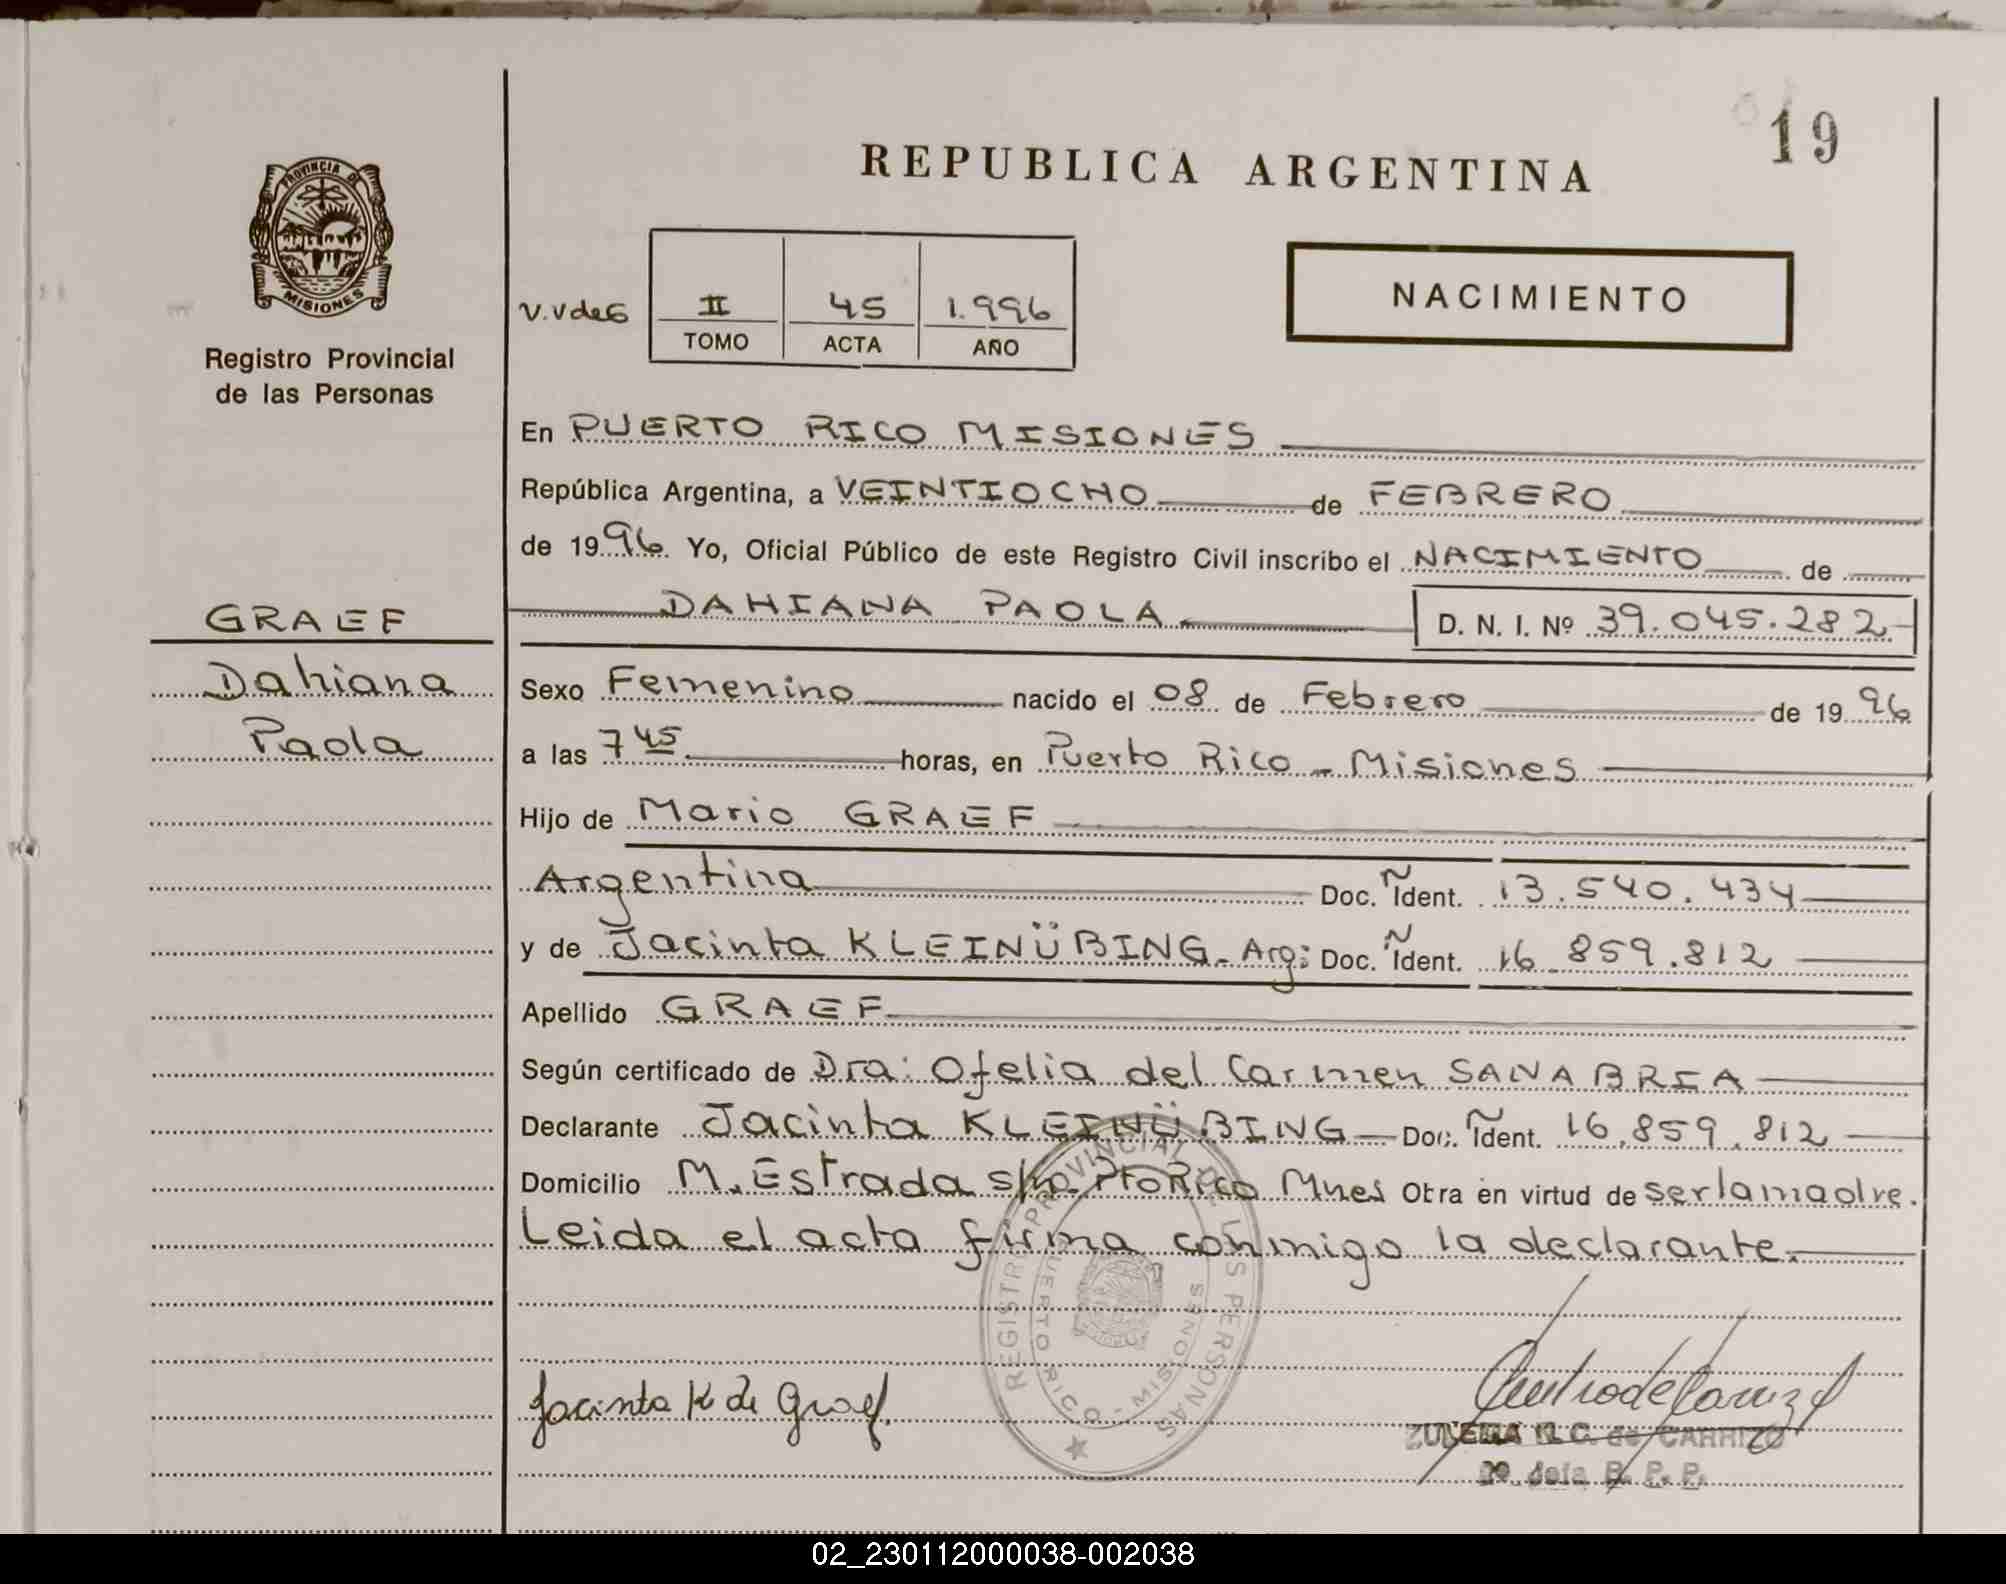 19
REPUBLICA ARGENTINA
PROVINCIA DE
MISIONES
Registro Provincial
de las Personas
NACIMIENTO
V.VdeG II 45 1.996
TOMO ACTA AÑO
En PUERTO RICO MISIONES
República Argentina, a VEINTIOCHO de FEBRERO
de 1996. Yo, Oficial Público de este Registro Civil inscribo el NACIMIENTO de
DAHIANA PAOLA D. N. I. Nº 39.045.282
GRAEF
Dahiana
Paola
Sexo Femenino nacido el 08 de Febrero de 1996
a las 7 45 horas, en Puerto Rico - Misiones
Hijo de Mario GRAEF
Argentina Doc. Ñ Ident. 13.540.434
y de Jacinta KLEINÜBING - Arg: Doc. Ñ Ident. 16.859.812
Apellido GRAEF
Según certificado de Dra: Ofelia del Carmen SANABRIA
Declarante Jacinta KLEINÜBING - Doc. Ñ Ident. 16.859.812
Domicilio M. Estrada s/n. Pto Rico Mnes Otra en virtud de ser la madre.
Leida el acta firma conmigo la declarante.
REGISTRO PROVINCIAL DE LAS PERSONAS
PUERTO RICO - MISIONES
Jacinta K de Graef.
ZULEMA N. C. de CARRIZO
2º Jefa R. P. P.
02_230112000038-002038